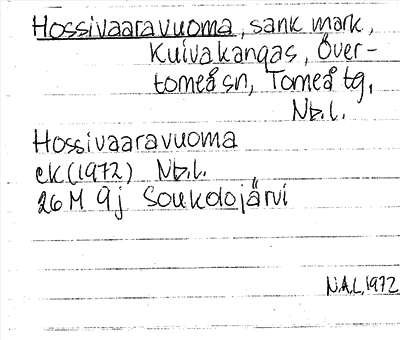 Hossivaaravuoma, sank mark,
Kuivakangas, Över-
torneå sn, Torneå tg,
Nb.l.
Hossivaaravuoma
ek (1972) Nb.l.
26 M 9j Soukolojärvi
N.A.L. 1972